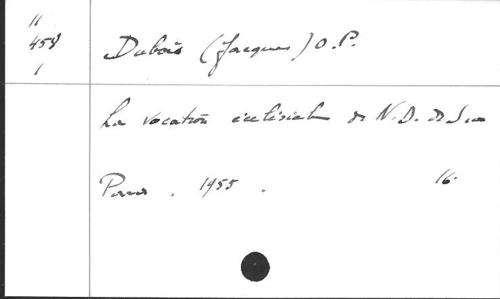 11
458
1
Dubois (Jacques) O.P.
La vocation ecclésiale de N.D. de
Paris . 1955 . 16°